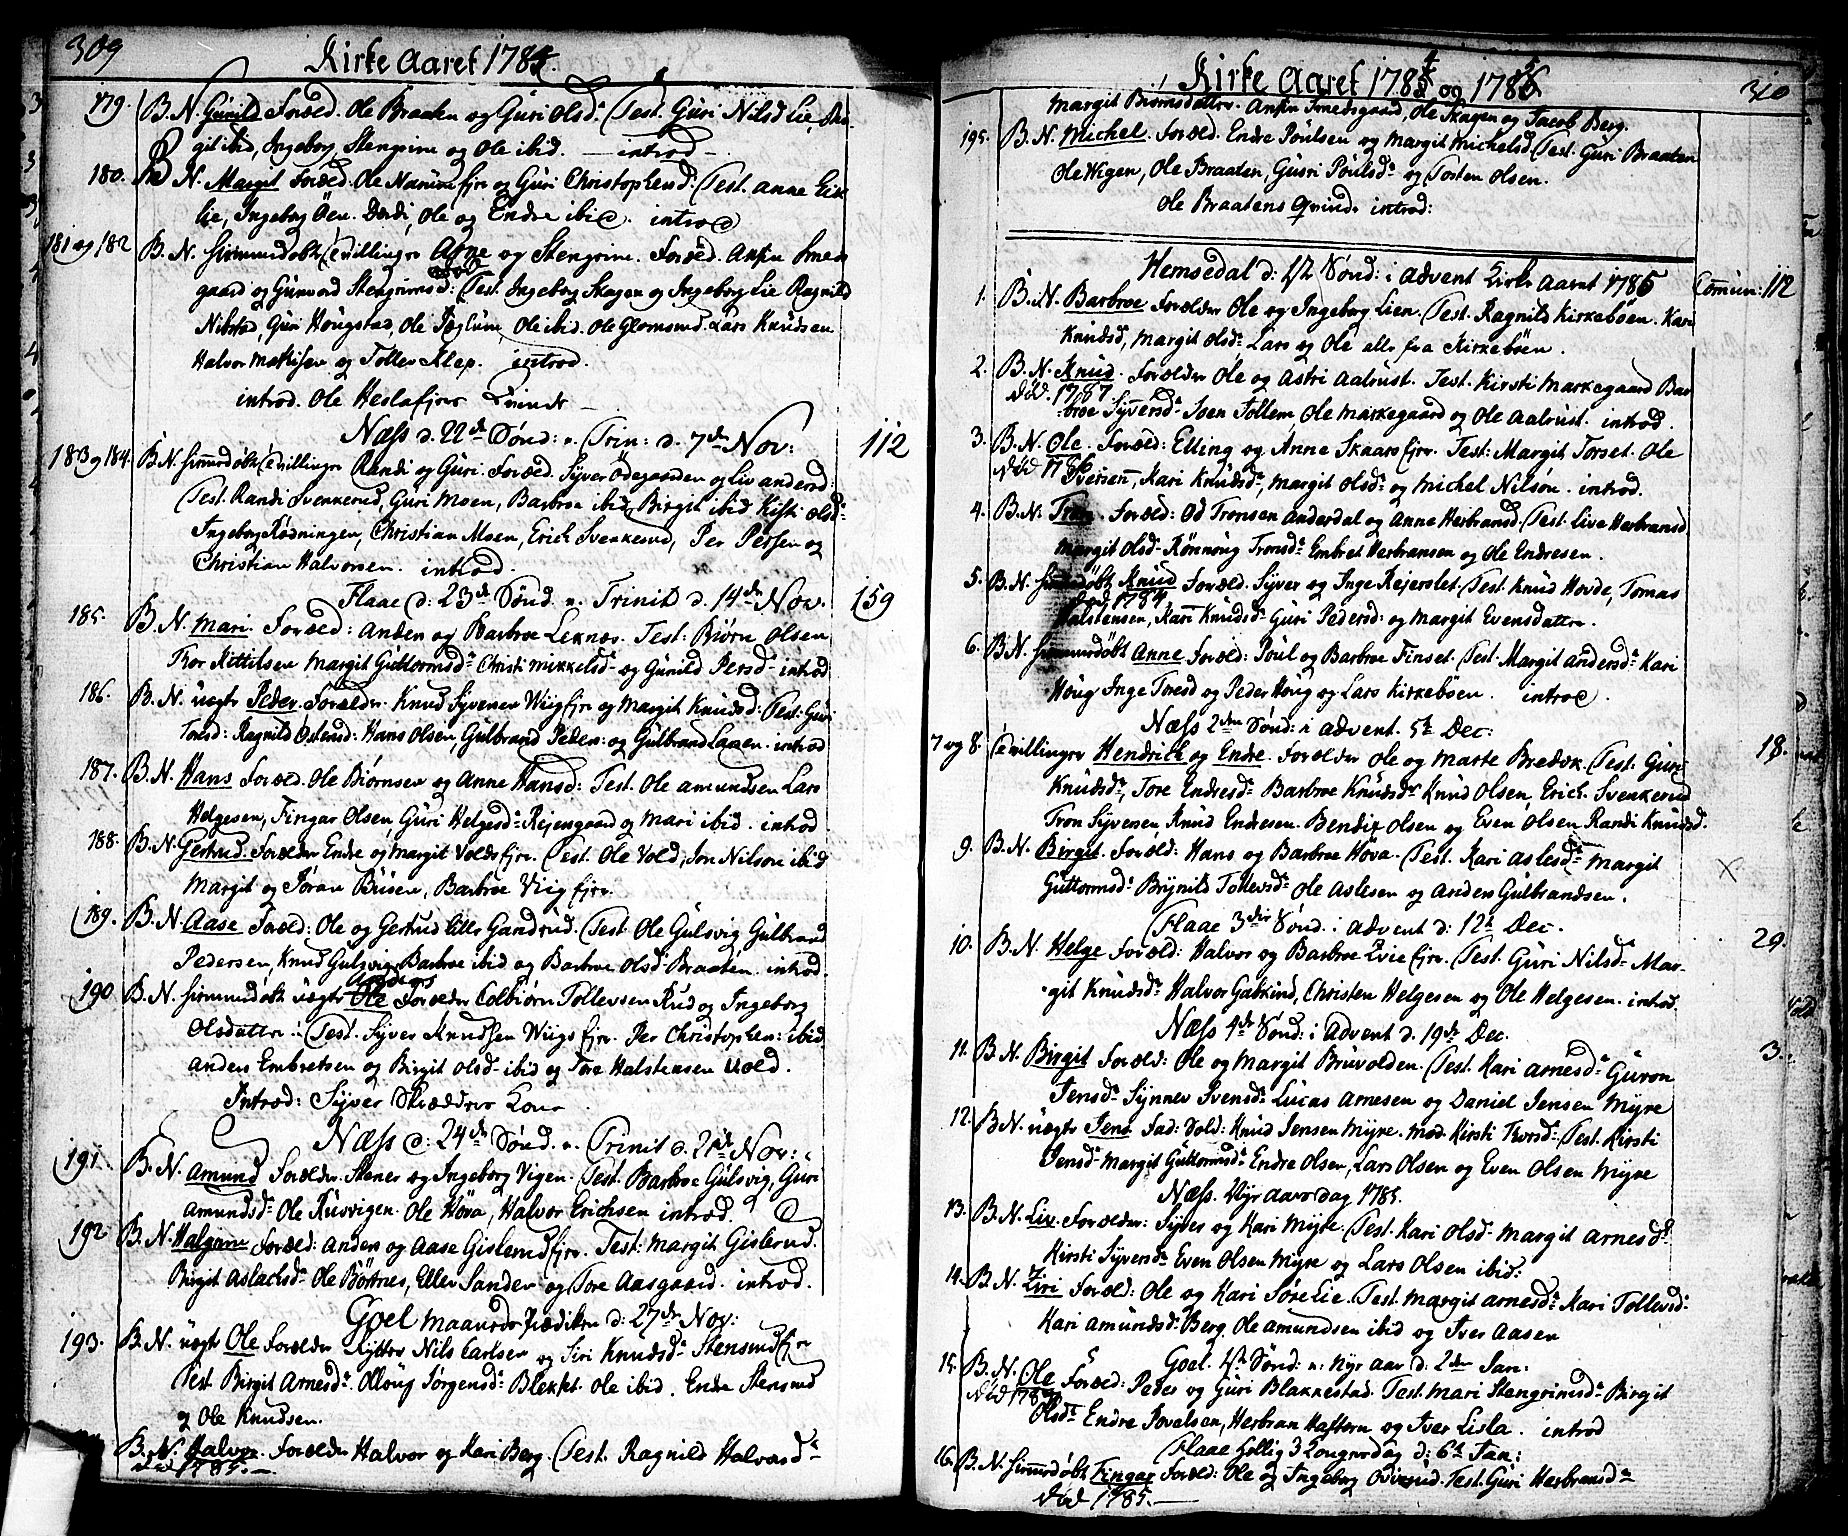 309
Kirke Aaret 1784.
179. B. N. Gunild Foræld. Ole Braaten og Guri Olsd. Test. Guri Nilsd Lie, Bir-
git ibid, Ingeborg, Stengrim og Ole ibid. introd
180. B. N. Margit Foræld. Ole Næruefjer og Guri Christophersd: Test. Anne Eik
lie, Ingeborg Öen. Dordi, Ole og Endre ibid. introd
181 og 182 B. N. hiemmedøbt tvillinger Arne og Stengrim. Foræld. Ansten Smeds
gaard og Gunvord Stengrimsd: Test. Ingeborg Skagen og Ingeborg Lie Ragnild
Nibstad, Guri Hougstad, Ole Tøglum, Ole ibid. Ole Glomsrud. Lars Knudsen
Halvor Mathisen og Tollev Klep. introd.
introd. Ole Heslafjers Qvinde
Næss d. 22de Sønd: n. Trin: d. 7de Nov: 112
183 og 184. B. N. hiemmedøbte tvillinger Randi og Guri. Foræld. Syver Ødegaarden og Liv Andersd:
Test. Randi Svenkerud, Guri Moen, Barbroe ibid, Birgit ibid Kisti Olsd
Ingeborg Rødningen, Christian Moen, Erich Svenkerud, Per Persen og
Christian Halvorsen. introd.
Flaae d: 23de Sønd. n. Trinit d. 14de Nov. 159
185. B. N. Mari. Foræld: Anders og Barbroe Leknæs. Test: Biørn Olsen
Thor Kittilsen Margit Guttormsd Christi Mikkelsd og Gunild Persd introd
186. B. N. uægte Peder. Forældre Knud Syversen Wiigfjer og Margit Knudsd: Test. Guri
Toresd: Ragnild Ostensd: Hans Olsen, Gulbrand Peders: og Gulbrand Laaen. introd
187. B. N. Hans Foræld. Ole Biørnsen og Anne Hansd: Test. Ole Amundsen Lars
Helgesen, Fingar Olsen, Guri Helgesd Rejersgaard og Mari ibid. introd
188. B. N. Gertrud. Forældre Endre og Margit Voldsfjer. Test. Ole Vold, Jon Nilson ibid
Margit og Jøran Büsen, Barbroe Viigfjer.
189. B. N. Aase Foræld. Ole og Gertrud Gandrud. Test. Ole Gulsvig Gulbrand
Pedersen, Knud Gulsvig, Barbroe ibid og Barbroe Olsd Braaten. introd.
190. B. N. hiemmedøbt uægte Ole Forældre Colbiørn Tollevsen Rud og Ingeborg
Olsdatter: Test. Syver Knudsen Wiigsfjer. Per Christophers: ibid
Anders Embretsen og Birgit Olsd ibid og Tore Halstensen Vold.
Introd: Syver Skrædders Kone
Næss d: 24de Sønd. n. Trinit d. 21de Nov:
191. B. N. Amund Forældre Stener og Ingeborg Vigen. Test. Barbroe Gulsvig, Guri
Amundsd Ole Rusvigen. Ole Høva, Halvor Erichsen introd.
192 B. N. Halgrim Foræld: Anders og Aase Gislerudfjer. Test: Margit Gislerud.
Birgit Aslachsd Ole Børtnes, Eller Sander og Tore Aasgaard. introd.
Goel Maaneds Prædiken d: 27de Nov:
193. B. N. uægte Ole Forældre Rytter Nils Carlsen og Siri Knudsd Stensrudfjer
Test. Birgit Arnesd. Olloug Jørgensd Blekket. Ole ibid. Endre Stensrud
og Ole Knudsen.
B. N. Halvor. Forældre Halvor og Kari Berg. Test. Ragnild Halvorsd
død 1785.
Kirke Aaret 1784 og 1785
310
Margit Biørnsdatter. Ansten Smedsgaard, Ole Skagen og Jacob Berg.
195. B. N. Michel. Foræld. Endre Poulsen og Margit Michelsd. Test. Guri Braaten
Ole Wigen, Ole Braaten, Guri Poulsd og Torsten Olsen.
Ole Braatens Qvinde introd:
Hemsedal d: 1ste Sønd: i Advent Kirke Aaret 1785 Commun: 112
1. B. N. Barbroe Forældre Ole og Ingeborg Lien. Test. Ragnild Kirkebøen. Kari
Knudsd, Margit Olsd Lars og Ole alle fra Kirkebøen.
2. B. N. Knud. Forældre Ole og Astri Aalrust. Test. Kirsti Markegaard Bar
død. 1787
broe Syversd Joen Tollem, Ole Markegaard og Ole Aalrust. introd.
3. B. N. Ole. Foræld: Elling og Anne Skaarsfjer. Test: Margit Torset. Ole
død 1786
Iversen, Kari Knudsd, Margit Olsd og Michel Nilson. introd.
4. B. N. Tron. Foræld: Od Tronsen Anderdal og Anne Herbransd Test. Live Herbransd
Margit Olsd Rønnoug Tronsd Embret Herbransen og Ole Endresen.
5. B. N. hiemmedøbt Knud Foræld. Syver og Inge Rejerslet. Test. Knud Hovde, Tomas
død 1784
Halstensen, Kari Knudsd Guri Pedersd og Margit Evensdatter.
6. B. N. hiemmedøbt Anne Foræld: Poul og Barbroe Finset. Test. Margit Andersd Kari
Houg Inge Toresd og Peder Houg og Lars Kirkebøen. introd
Næss 2den Sønd: i Advent. 5te Dec:
7 og 8. tvillinger Hendrich og Endre. Forældre Ole og Marte Bredæk. Test. Guri 18.
Knudsd, Tore Endresd Barbroe Knudsd Knud Olsen, Erich Svenkerud
Tron Syversen Knud Endresen. Bendix Olsen og Even Olsen Randi Knudsd.
9. B. N. Birgit. Foræld: Hans og Barbroe Høva. Test. Kari Aslesd Margit
Guttormsd Brynild Tollevsd Ole Aslesen og Anders Gulbrandsen.
Flaae 3die Sønd: i Advent d: 12te Dec.
10. B. N. Helge Foræld: Halvor og Barbroe Eviefjer. Test. Guri Nilsd Mar- 29.
git Knudsd Halvor Gabkind, Christen Helgesen og Ole Helgesen. introd.
Næss 4de Sønd: i Advent d. 19de Dec.
11. B. N. Birgit Foræld: Ole og Margit Bruvolden. Test. Kari Arnesd Guron 3.
Jensd Synnev Svensd Lucas Arnesen og Daniel Jensen Myre
12. B. N. uægte Jens Fad. Sold: Knud Jensen Myre. Mod. Kirsti Thorsd Test. Kirsti
Jensd Margit Guttormsd Endre Olsen, Lars Olsen og Even Olsen Myre
Næss. Nyr Aars dag 1785.
13. B. N. Liv. Forældre: Syver og Kari Myre. Test. Kari Olsd Margit Arnesd
Kirsti Syversd Even Olsen Myre og Lars Olsen ibid:
14. B. N. Siri Foræld: Ole og Kari Søre Lie. Test. Margit Arnesd Kari Tollevsd
Kari Amundsd Berg. Ole Amundsen ibid og Iver Aasen
Goel. 1ste Sønd: n: Nyr aar d: 2den Jan:
15. B. N. Ole Foræld: Peder og Guri Blakkestad. Test. Mari Stengrimsd Birgit
død 1785
Olsd Endre Povelsen, Herbran Haftorn og Iver Lisla. introd
Flaae hellig 3 Kongersdag d: 6te Jan:
16. B. N. hiemmedøbt Fingar Foræld: Ole og Ingeborg Odverud. Test. Guri Herbransd
død 1785.